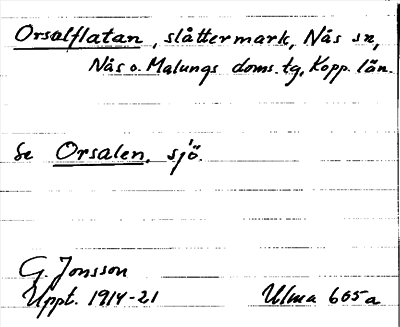 Orsalflatan, slåttermark, Nås sn,
Nås o. Malungs doms. tg, Kopp. län.
Se Orsalen, sjö.
G. Jonsson
Uppt. 1914-21 Ulma 605a